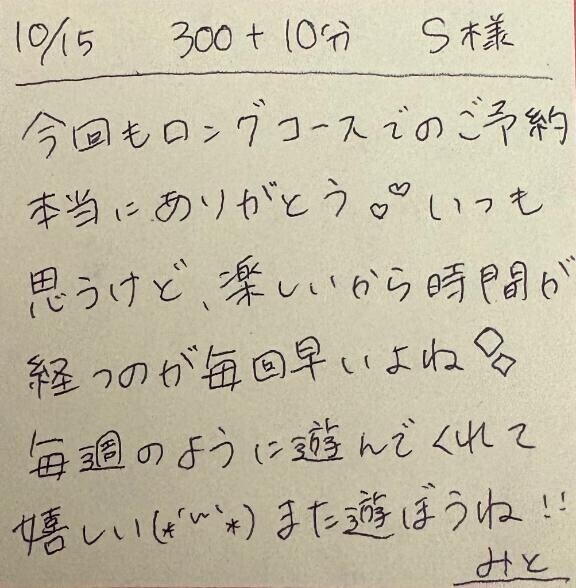 10/15 300+10分 S様
今回もロングコースでのご予約
本当にありがとう♡♡いつも
思うけど、楽しいから時間が
経つのが毎回早いよね◇◇
毎週のように遊んでくれて
嬉しい(*´ω`*)また遊ぼうね!!
みと